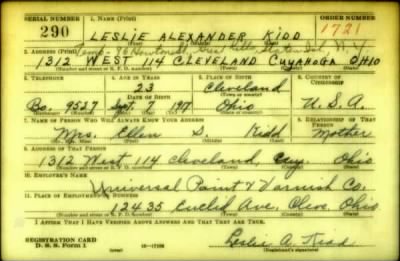 SERIAL NUMBER 1. NAME (Print) ORDER NUMBER
290 LESLIE ALEXANDER KIDD 1721
(First) (Middle) (Last)
2. ADDRESS (Print) Temp- 96 Great Kills, Staten Isl, N.Y.
1312 WEST 114 CLEVELAND CUYAHOGA OHIO
(Number and street or R. F. D. number) (Town) (County) (State)
3. TELEPHONE 4. AGE IN YEARS 5. PLACE OF BIRTH 6. COUNTRY OF CITIZENSHIP
23 Cleveland
DATE OF BIRTH (Town or county)
Bo. 9527 Sept. 7 1917 Ohio U.S.A.
(Exchange) (Number) (Mo.) (Day) (Yr.) (State or country)
7. NAME OF PERSON WHO WILL ALWAYS KNOW YOUR ADDRESS 8. RELATIONSHIP OF THAT PERSON
Mrs. Ellen S. Kidd Mother
(Mr., Mrs., Miss) (First) (Middle) (Last)
9. ADDRESS OF THAT PERSON
1312 West 114 Cleveland, Cuy. Ohio
(Number and street or R. F. D. number) (Town) (County) (State)
10. EMPLOYER'S NAME
Universal Paint & Varnish Co.
11. PLACE OF EMPLOYMENT OR BUSINESS
12435 Euclid Ave. Cleve. Ohio
(Number and street or R. F. D. number) (Town) (County) (State)
I AFFIRM THAT I HAVE VERIFIED ABOVE ANSWERS AND THAT THEY ARE TRUE.
REGISTRATION CARD
D. S. S. Form 1 Leslie A. Kidd
(Registrant's signature)